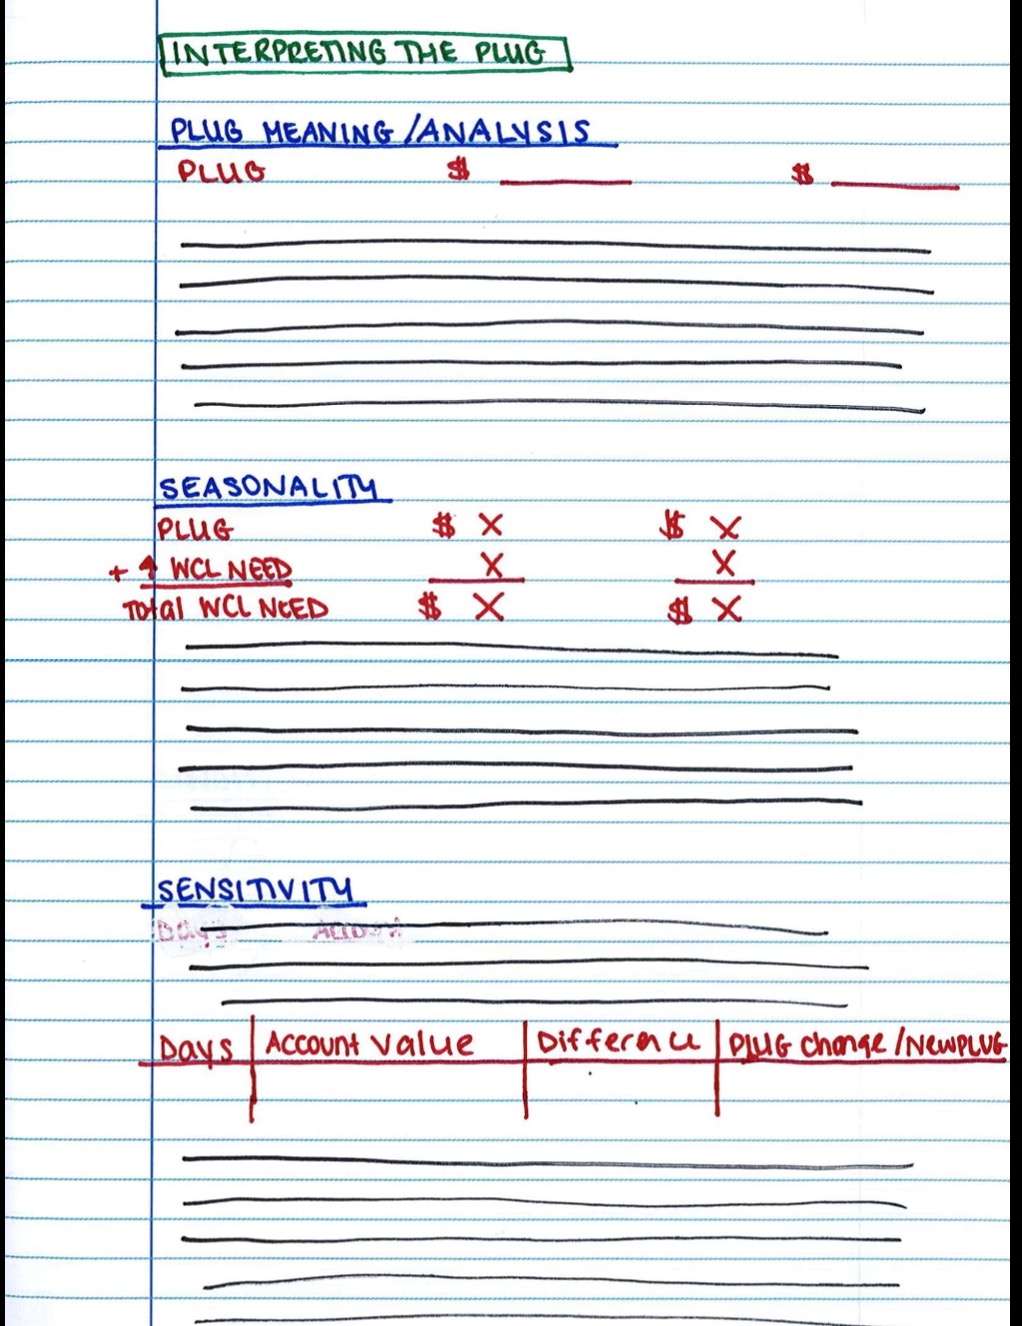 INTERPRETING THE PLUG
PLUG MEANING/ANALYSIS
PLUG $ $
SEASONALITY
PLUG $ X $ X
+ ↑ WCL NEED X X
Total WCL NEED $ X $ X
SENSITIVITY
Days Account
Days Account Value Difference PLUG change/NEWPLUG